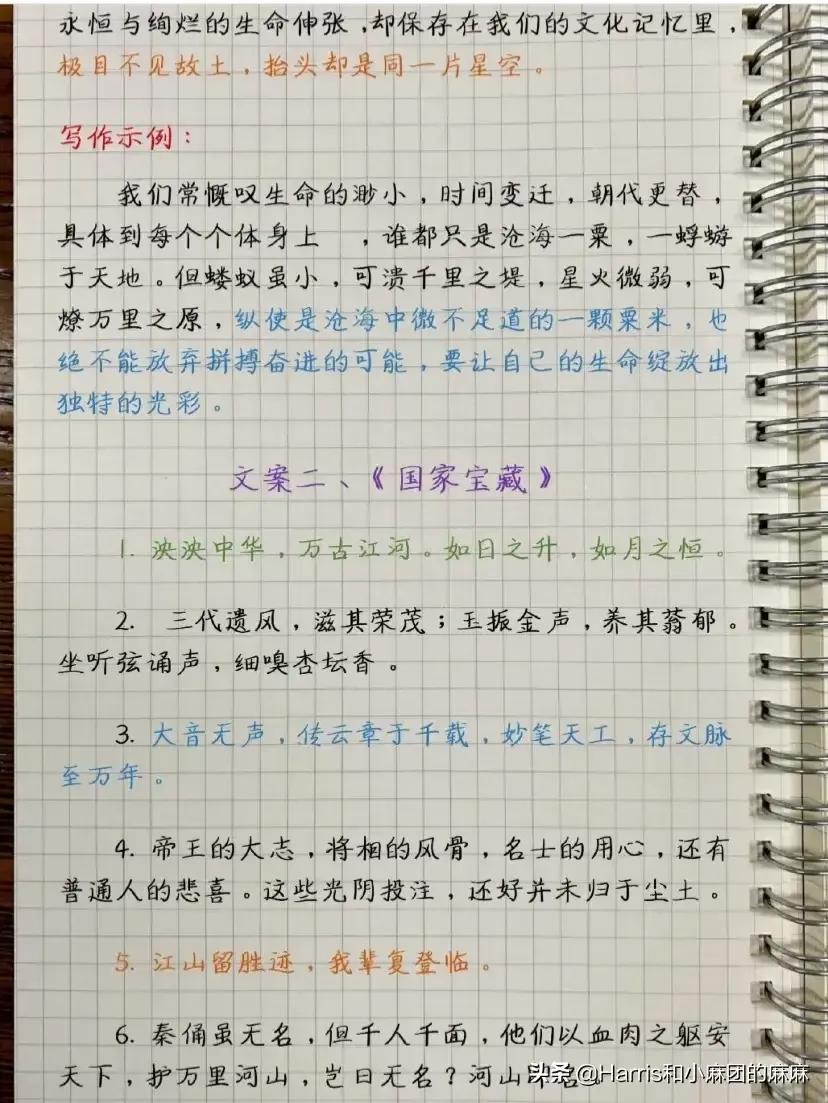 永恒与绚烂的生命伸张，却保存在我们的文化记忆里，
极目不见故土，抬头却是同一片星空。
写作示例：
我们常慨叹生命的渺小，时间变迁，朝代更替，
具体到每个个体身上 ，谁都只是沧海一粟，一蜉蝣
于天地。但蝼蚁虽小，可溃千里之堤，星火微弱，可
燎万里之原，纵使是沧海中微不足道的一颗粟米，也
绝不能放弃拼搏奋进的可能，要让自己的生命绽放出
独特的光彩。
文案二、《国家宝藏》
1. 泱泱中华，万古江河。如日之升，如月之恒。
2. 三代遗风，滋其荣茂；玉振金声，养其蓊郁。
坐听弦诵声，细嗅杏坛香。
3. 大音无声，传云章于千载，妙笔天工，存文脉
至万年。
4. 帝王的大志，将相的风骨，名士的用心，还有
普通人的悲喜。这些光阴投注，还好并未归于尘土。
5. 江山留胜迹，我辈复登临。
6. 秦俑虽无名，但千人千面，他们以血肉之躯安
天下，护万里河山，岂曰无名？河山即名。
头条@Harris和小麻团的麻麻